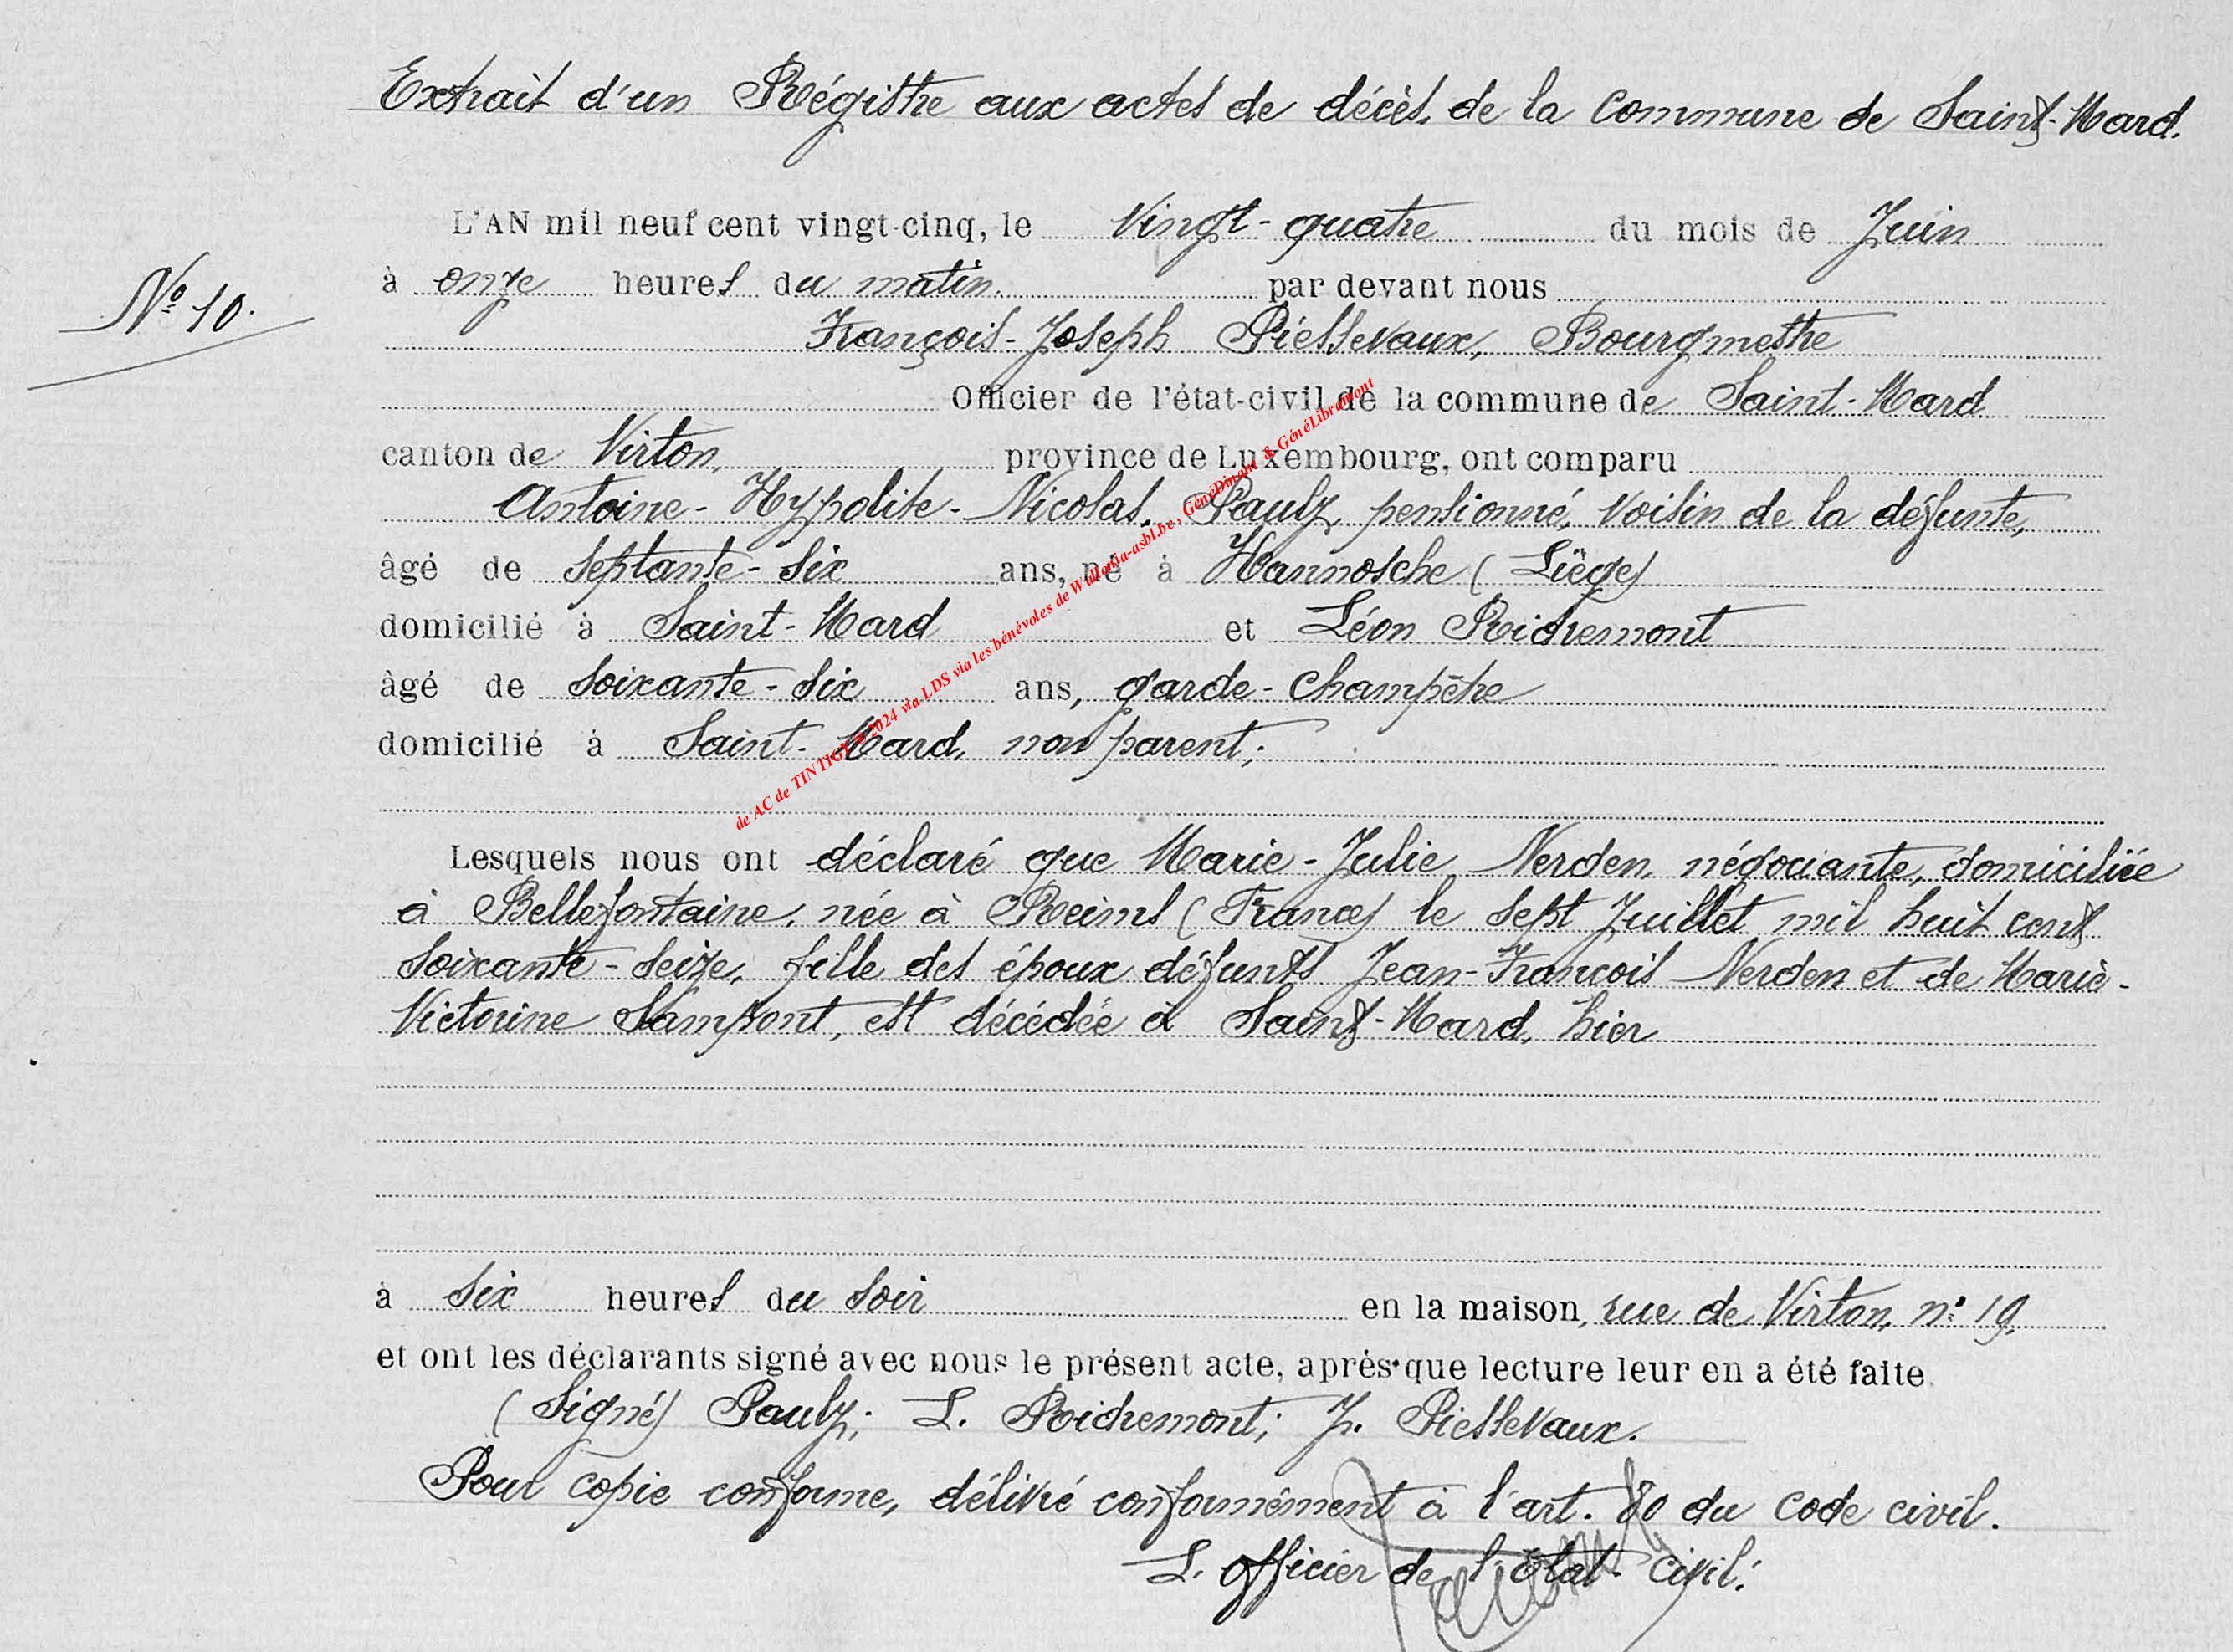 Extrait d'un Régistre aux actes de décès, de la Commune de Saint-Mard.
L'AN mil neuf cent vingt-cinq, le Vingt-quatre du mois de Juin
N° 10.
à onze heures du matin. par devant nous
François-Joseph Piessevaux, Bourgmestre
Officier de l'état-civil de la commune de Saint-Mard
canton de Virton, province de Luxembourg, ont comparu
Antoine-Hypolite-Nicolas, Paulz, pensionné, voisin de la défunte,
âgé de septante-six ans, né à Hannosche (Liège)
domicilié à Saint-Mard et Léon Richemont
âgé de soixante-six ans, garde-champêtre
domicilié à Saint-Mard, non parent;
de AC de TINTIGNY 2024 via LDS via les bénévoles de Wallonia-asbl.be, GénéDinant & GénéLibramont
Lesquels nous ont déclaré que Marie-Julie Nerden, négociante, domiciliée
à Bellefontaine, née à Reims (France) le sept Juillet mil huit cent
soixante-seize, fille des époux défunts Jean-François Nerden et de Marie-
Victorine Sampont, est décédée à Saint-Mard, hier
à six heures du soir en la maison, rue de Virton, n° 19,
et ont les déclarants signé avec nous le présent acte, après que lecture leur en a été faite.
(Signé) Paulz; L. Richemont; J. Piessevaux.
Pour copie conforme, délivré conformément à l'art. 80 du Code civil.
L'officier de l'état-civil: